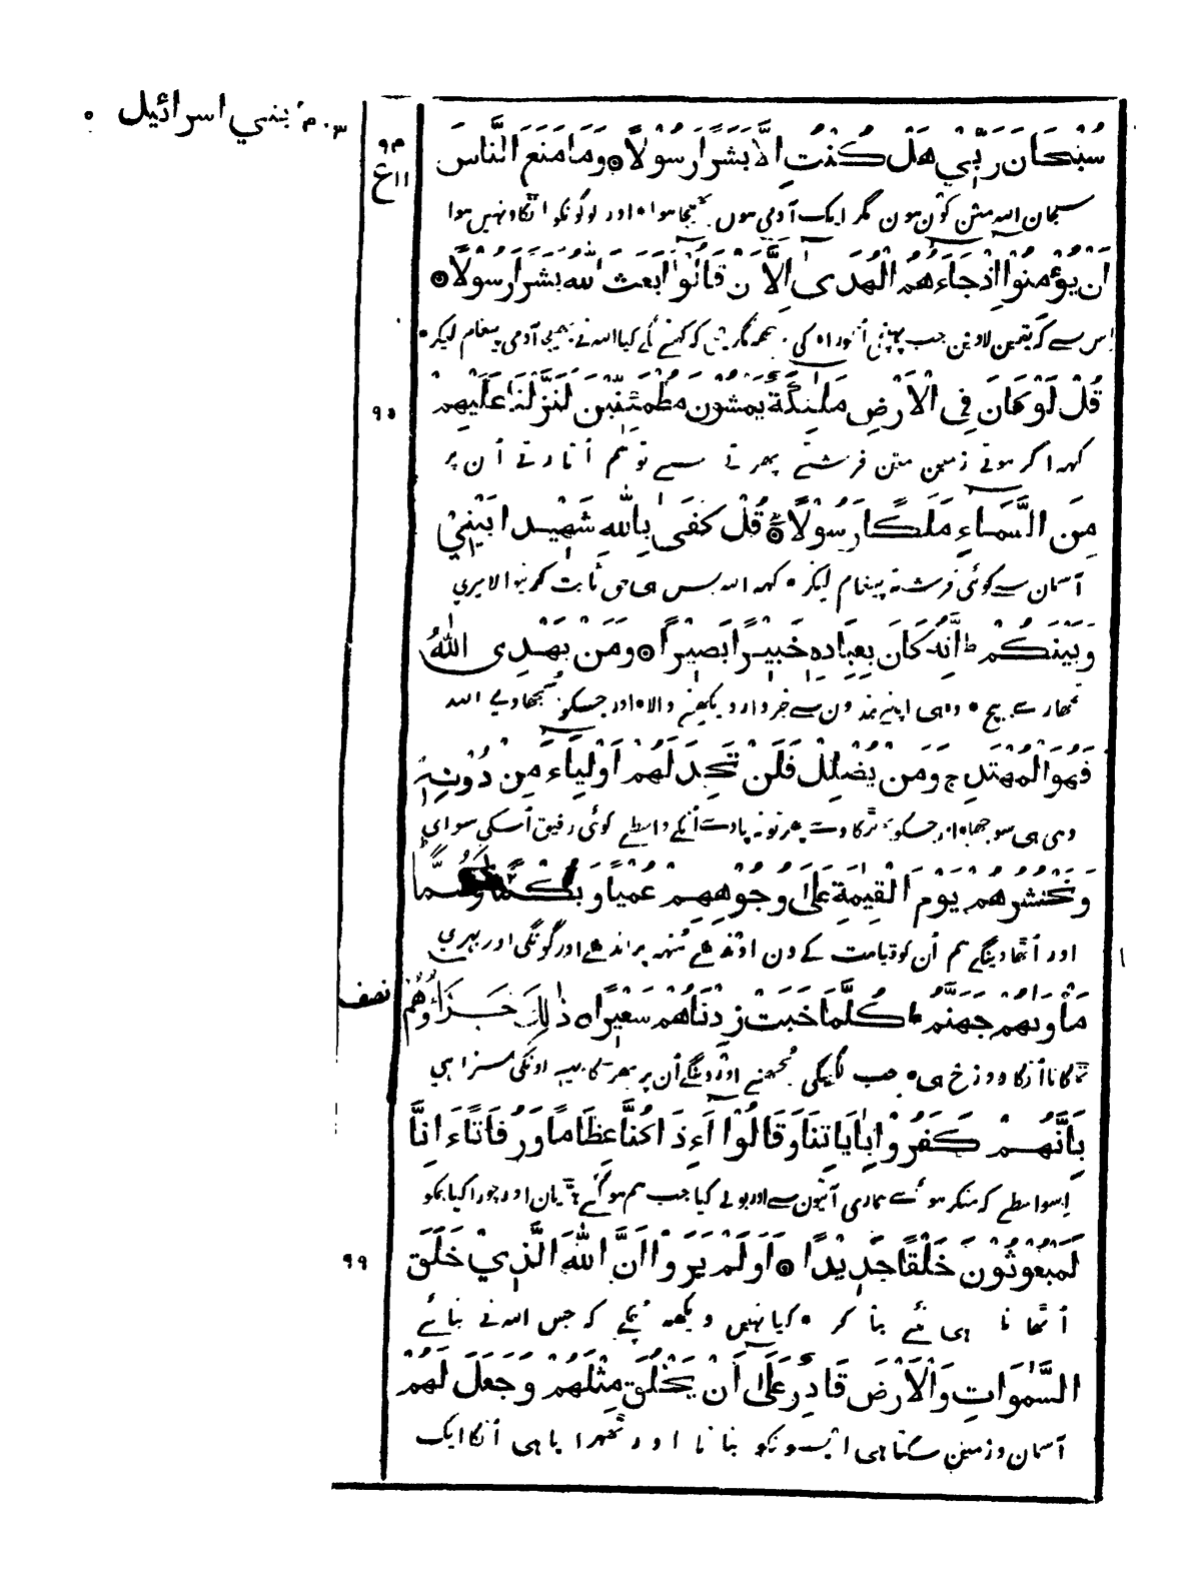 ۳۰۰م بنی اسرائیل ٥
٩٣
١١ع
سُبْحَانَ رَبِّيْ هَلْ كُنْتُ اِلَّا بَشَرًا رَسُوْلًا ٥ وَمَا مَنَعَ النَّاسَ
سبحان الله مین کون ہون مگر ایک آدمی ہوں بھیجا ہوا ٥ اور لوگونکو اٹکاو نہیں ہوا
اَنْ يُؤْمِنُوْا اِذْ جَاءَهُمُ الْهُدٰى اِلَّا اَنْ قَالُوْا اَبَعَثَ اللهُ بَشَرًا رَسُوْلًا ٥
اس سے کہ یقین لاوین جب پہنچی اُنکو راہ کی مگر یہی کہ کہنے لگے کیا اللہ نے بھیجا آدمی پیغام لیکر ٥
٩٥
قُلْ لَوْ كَانَ فِي الْاَرْضِ مَلٰئِكَةٌ يَمْشُوْنَ مُطْمَئِنِّيْنَ لَنَزَّلْنَا عَلَيْهِمْ
کہہ اگر ہوتے زمین مین فرشتے پھرتے بستے تو ہم اُتارتے اُن پر
مِنَ السَّمَاءِ مَلَكًا رَسُوْلًا ٥ قُلْ كَفٰى بِاللهِ شَهِيْدًا بَيْنِيْ
آسمان سے کوئی فرشتہ پیغام لیکر ٥ کہہ اللہ بس ہی حق ثابت کرنیوالا میری
وَبَيْنَكُمْ ط اِنَّهُ كَانَ بِعِبَادِهٖ خَبِيْرًا بَصِيْرًا ٥ وَمَنْ يَهْدِى اللهُ
تمھارے بیچ ٥ وہ ہی اپنے بندون سے خبردار دیکھنے والا ٥ اور جسکو سمجھاوے اللہ
فَهُوَ الْمُهْتَدِ ج وَمَنْ يُضْلِلْ فَلَنْ تَجِدَ لَهُمْ اَوْلِيَاءَ مِنْ دُوْنِهٖ
وہی ہی سوجھا ٥ اور جسکو بھٹکاوے پھر تو نہ پاوے اُنکے واسطے کوئی رفیق اُسکی سوای
وَنَحْشُرُهُمْ يَوْمَ الْقِيٰمَةِ عَلٰى وُجُوْهِهِمْ عُمْيًا وَبُكْمًا وَصُمًّا
اور اُٹھاوینگے ہم اُن کو قیامت کے دن اوندھے مُنہہ پر اندھے اور گونگی اور بہری
نصف
مَأْوٰىهُمْ جَهَنَّمُ ط كُلَّمَا خَبَتْ زِدْنَاهُمْ سَعِيْرًا ٥ ذٰلِكَ جَزَاؤُهُمْ
ٹھکانا اُنکا دوزخ ہی ٥ جب لگیگی بُجھنے اور دینگے اُن پر بھڑکا ٥ یہہ اونکی سزا ہی
بِاَنَّهُمْ كَفَرُوْا بِاٰيَاتِنَا وَقَالُوْا ءَاِذَا كُنَّا عِظَامًا وَرُفَاتًا ءَاِنَّا
اِسواسطے کہ منکر ہوئے ہماری آیتون سے اور بولے کیا جب ہم ہو گئے ہڈیان اور چورا کیا ہمکو
٩٩
لَمَبْعُوْثُوْنَ خَلْقًا جَدِيْدًا ٥ اَوَلَمْ يَرَوْا اَنَّ اللهَ الَّذِيْ خَلَقَ
اُٹھانا ہی نئے بنا کر ٥ کیا نہیں دیکھہ چُکے کہ جس اللہ نے بنائے
السَّمٰوَاتِ وَالْاَرْضَ قَادِرٌ عَلٰى اَنْ يَخْلُقَ مِثْلَهُمْ وَجَعَلَ لَهُمْ
آسمان و زمین سکتا ہی ایسونکو بنانا اور ٹھہرایا ہی اُنکا ایک